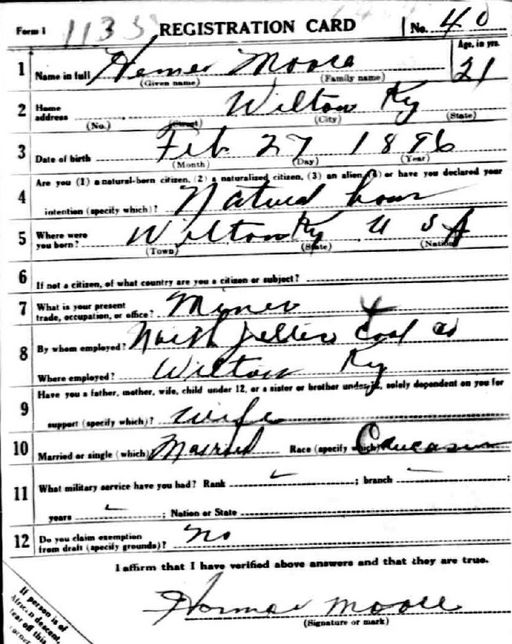 Form 1 1135 REGISTRATION CARD No. 40
1 Name in full Homer Moore Age, in yrs. 21
(Given name) (Family name)
2 Home address Wilton Ky
(No.) (Street) (City) (State)
3 Date of birth Feb 27 1896
(Month) (Day) (Year)
4 Are you (1) a natural-born citizen, (2) a naturalized citizen, (3) an alien, (4) or have you declared your
intention (specify which)? Natural born
5 Where were you born? Wilton Ky U S A
(Town) (State) (Nation)
6 If not a citizen, of what country are you a citizen or subject?
7 What is your present trade, occupation, or office? Miner
8 By whom employed? North Jellico Coal Co
Where employed? Wilton Ky
9 Have you a father, mother, wife, child under 12, or a sister or brother under 12, solely dependent on you for
support (specify which)? Wife
10 Married or single (which) Married Race (specify which) Caucasian
11 What military service have you had? Rank ; branch ;
years ; Nation or State
12 Do you claim exemption from draft (specify grounds)? No
I affirm that I have verified above answers and that they are true.
Homer Moore
(Signature or mark)
If person is of
African descent,
tear off this
corner